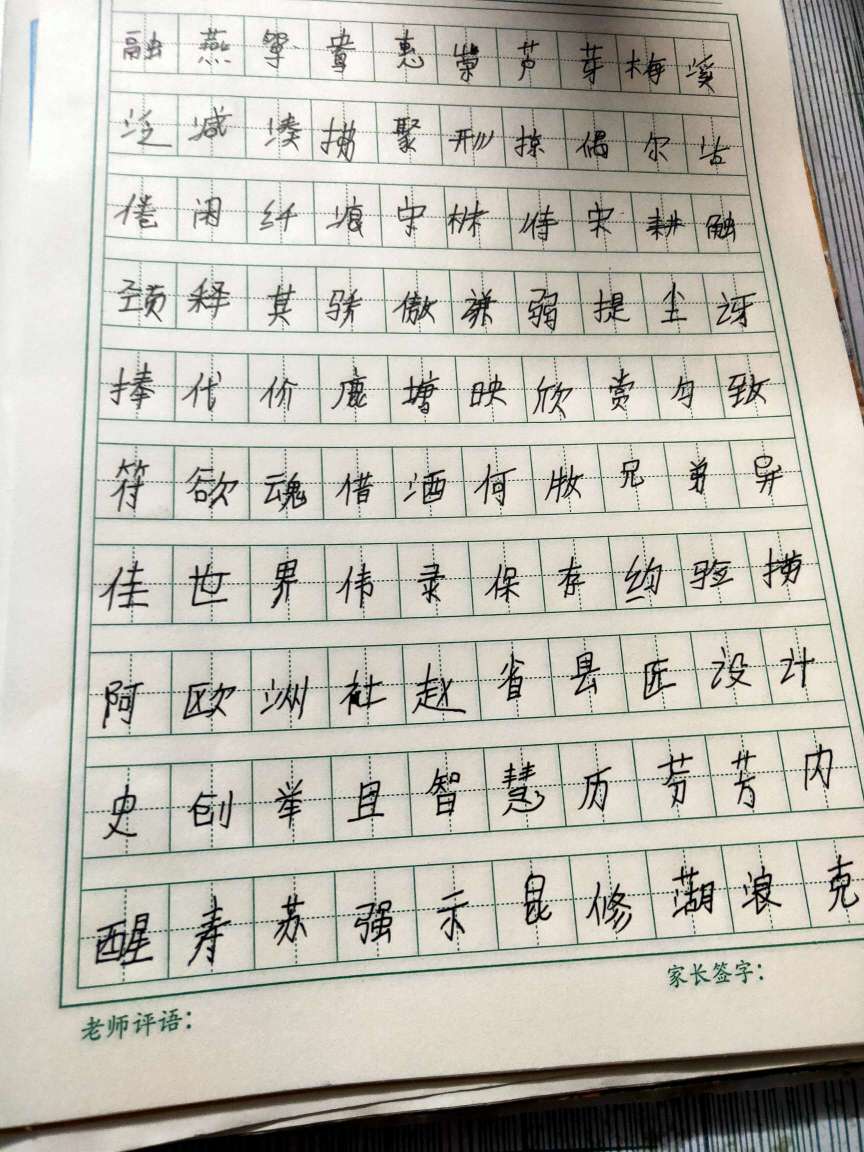 融 燕 惠 崇 芦 芽 梅 溪
泛 减 凑 聚 形 掠 偶 尔 沾
倦 闲 纤 痕 守 株 待 宋 耕 触
颈 释 其 骄 傲 谦 弱 提 尘 讶
捧 代 价 鹿 塘 映 欣 赏 匀 致
符 欲 魂 借 酒 何 牧 兄 弟 异
佳 世 界 伟 录 保 存 约 验 捞
阿 欧 洲 社 赵 省 县 匠 设 计
史 创 举 且 智 慧 历 芬 芳 内
醒 寿 苏 强 示 昆 修 浪 克
家长签字：
老师评语：